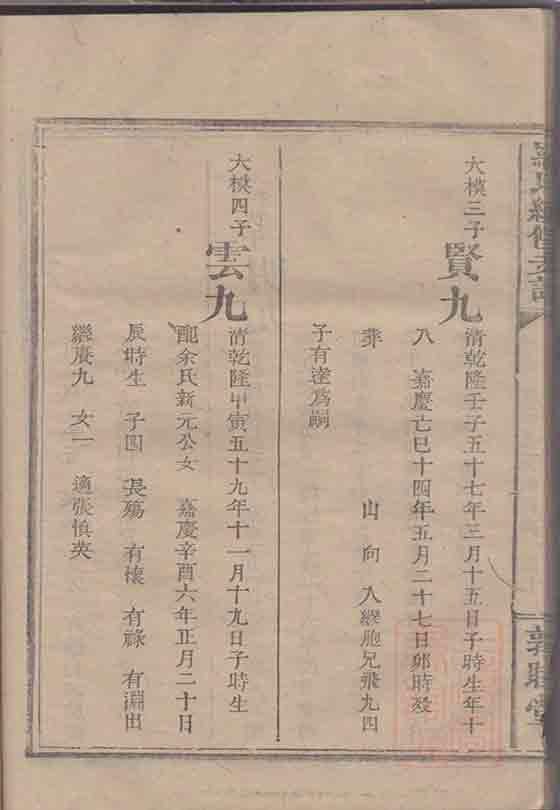 大模三子
賢九
清乾隆壬子五十七年三月十五日子時生年十
八 嘉慶亡巳十四年五月二十七日卯時歿
葬 山 向 入繼胞兄飛九四
子有達爲嗣
大模四子
雲九
清乾隆甲寅五十九年十一月十九日子時生
配余氏新元公女 嘉慶辛酉六年正月二十日
辰時生 子四 長殤 有懷 有祿 有淵出
繼賡九 女一 適張慎英